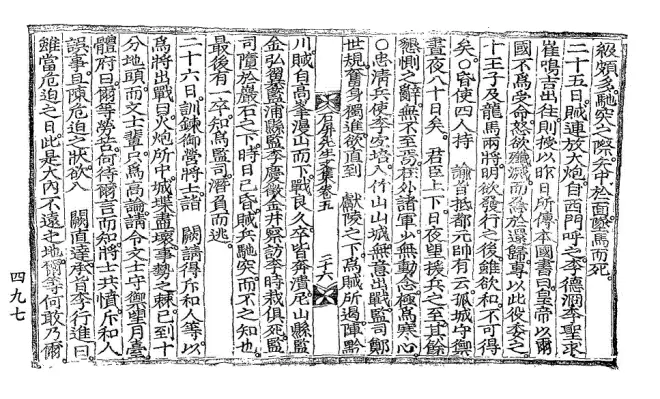 級頗多馳突之際矢中於面墜馬而死
二十五日賊連放大炮自西門呼之李德泂李聖求
崔鳴吉出往則授以昨日所傳本國書曰皇帝以爾
國不爲受命怒欲殲滅而急於還歸專以此役委之
十王子及龍馬兩將明欲發行之後雖欲和不可得
矣○昏使四人持 諭旨抵都元帥有云孤城守禦
晝夜八十日矣君臣上下日夜望援兵之至其餘
懇惻之辭無不至焉在外諸軍少無動念極爲寒心
○忠淸兵使李 培入竹山山城無意出戰監司鄭
世規奮身獨進欲直到 獻陵之下爲賊所遏陣黔
石屛先生文集卷五 二十六
川賊自高峯漫山而下戰良久卒皆奔潰尼山縣監
金弘翼藍浦縣監李慶徵金井察訪李時栽俱死監
司墮於巖石之下時日已昏賊兵馳突而不之知也
最後有一卒知爲監司潛負而逃
二十六日訓鍊御營將士詣 闕請得斥和人等以
爲將出戰曰火炮所中城堞盡壞事勢之棘已到十
分地頭而文士輩只爲高論請令文士守禦望月臺
體府曰爾等勞苦何待爾言而知將士共憤斥和人
誤事且陳危迫之狀欲入 闕直達承旨李行進曰
雖當危迫之日此是大內不遠之地爾等何敢乃爾
四九七